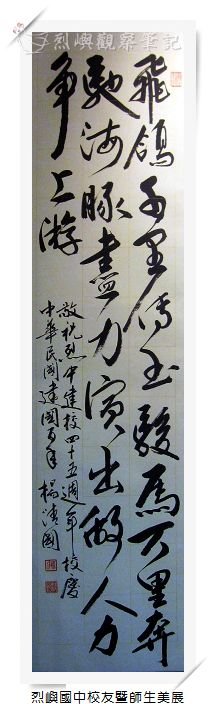 烈嶼觀察筆記
飛鴿千里傳書駿馬万里奔
馳海豚盡力演出做人力
争上游
敬祝烈中建校四十五週年校慶
中華民國建國百年 楊清國
烈嶼國中校友暨師生美展